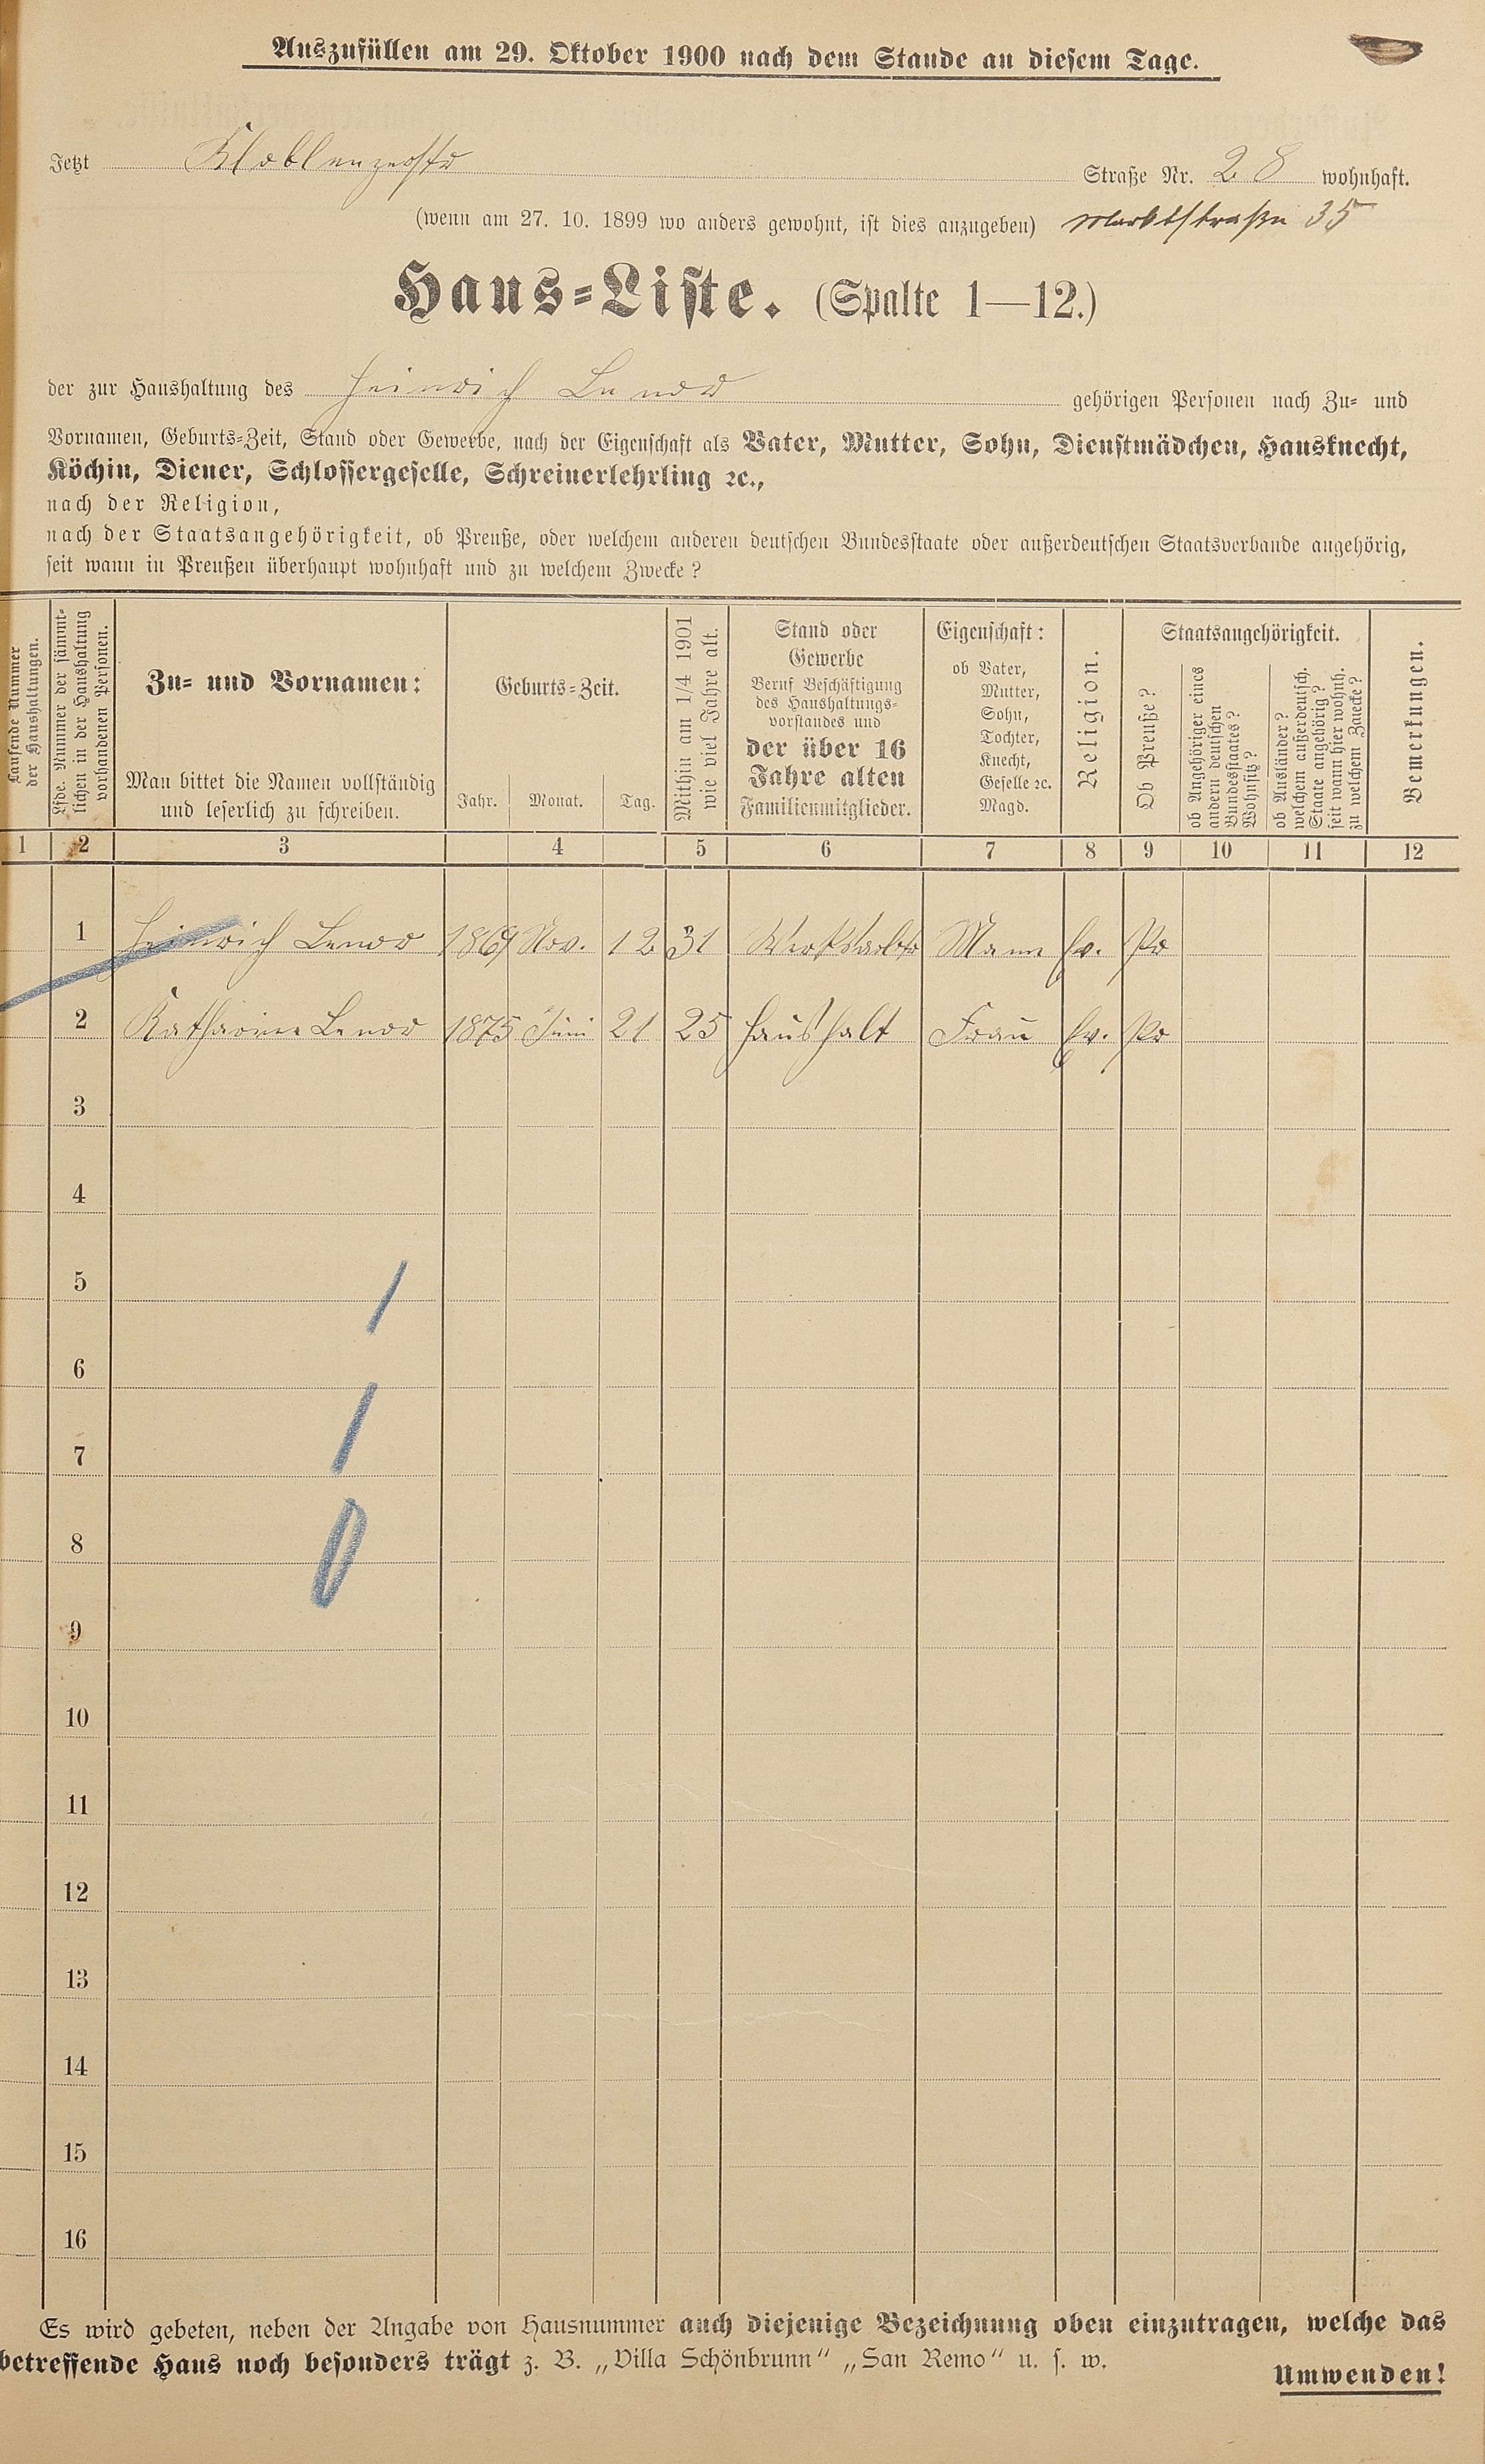 Auszufüllen am 29. Oktober 1900 nach dem Stande an diesem Tage.
Jetzt Koblenzerstr Straße Nr. 28 wohnhaft.
(wenn am 27. 10. 1899 wo anders gewohnt, ist dies anzugeben) Marktstraße 35
Haus-Liste. (Spalte 1—12.)
der zur Haushaltung des Heinrich gehörigen Personen nach Zu- und
Vornamen, Geburts-Zeit, Stand oder Gewerbe, nach der Eigenschaft als Vater, Mutter, Sohn, Dienstmädchen, Hausknecht,
Köchin, Diener, Schlossergeselle, Schreinerlehrling ꝛc.,
nach der Religion,
nach der Staatsangehörigkeit, ob Preuße, oder welchem anderen deutschen Bundesstaate oder außerdeutschen Staatsverbande angehörig,
seit wann in Preußen überhaupt wohnhaft und zu welchem Zwecke?
Laufende Nummer
der Haushaltungen.
Lfde. Nummer der sämmt-
lichen in der Haushaltung
vorhandenen Personen.
Zu- und Vornamen:
Man bittet die Namen vollständig
und leserlich zu schreiben.
Geburts-Zeit.
Jahr. Monat. Tag.
Mithin am 1/4 1901
wie viel Jahre alt.
Stand oder
Gewerbe
Beruf Beschäftigung
des Haushaltungs-
vorstandes und
der über 16
Jahre alten
Familienmitglieder.
Eigenschaft:
ob Vater,
Mutter,
Sohn,
Tochter,
Knecht,
Geselle ꝛc.
Magd.
Religion.
Staatsangehörigkeit.
Ob Preuße?
ob Angehöriger eines
andern deutschen
Bundesstaates?
Wohnsitz?
ob Ausländer?
welchem außerdeutsch.
Staate angehörig?
seit wann hier wohnh.
zu welchem Zwecke?
Bemerkungen.
1 2 3 4 5 6 7 8 9 10 11 12
1 Heinrich 1869 Nov. 12 31 Mann Ev. Pr
2 Katharina 1875 Juni 21 25 Haushalt Frau Ev. Pr
3
4
5
6
7
8
9
10
11
12
13
14
15
16
Es wird gebeten, neben der Angabe von Hausnummer auch diejenige Bezeichnung oben einzutragen, welche das
betreffende Haus noch besonders trägt z. B. „Villa Schönbrunn“ „San Remo“ u. s. w.
Umwenden!